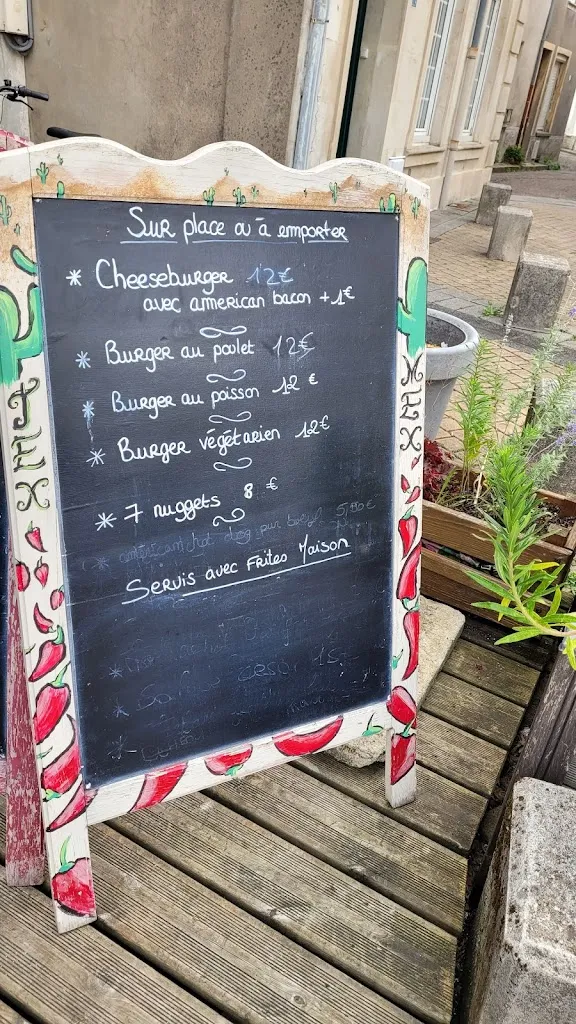 Sur place ou à emporter
* Cheeseburger 12€
avec american bacon +1€
* Burger au poulet 12€
* Burger au poisson 12 €
* Burger végétarien 12€
* 7 nuggets 8 €
* américain hot dog pur bœuf 5,90€
Servis avec Frites Maison
TEX
MEX